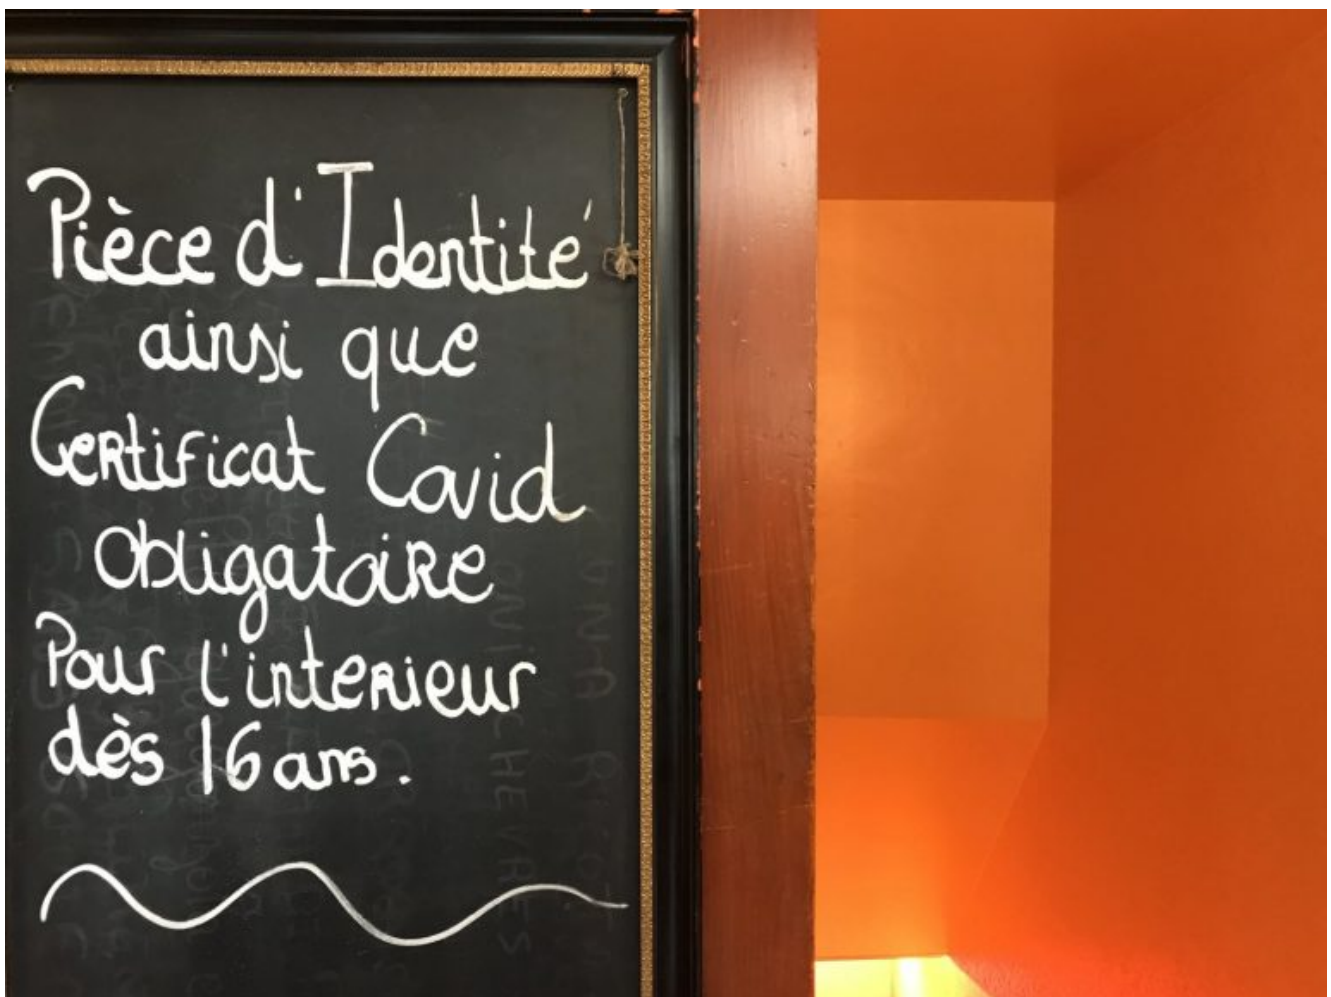 Pièce d'Identité
ainsi que
Certificat Covid
obligatoire
Pour l'interieur
dès 16 ans.